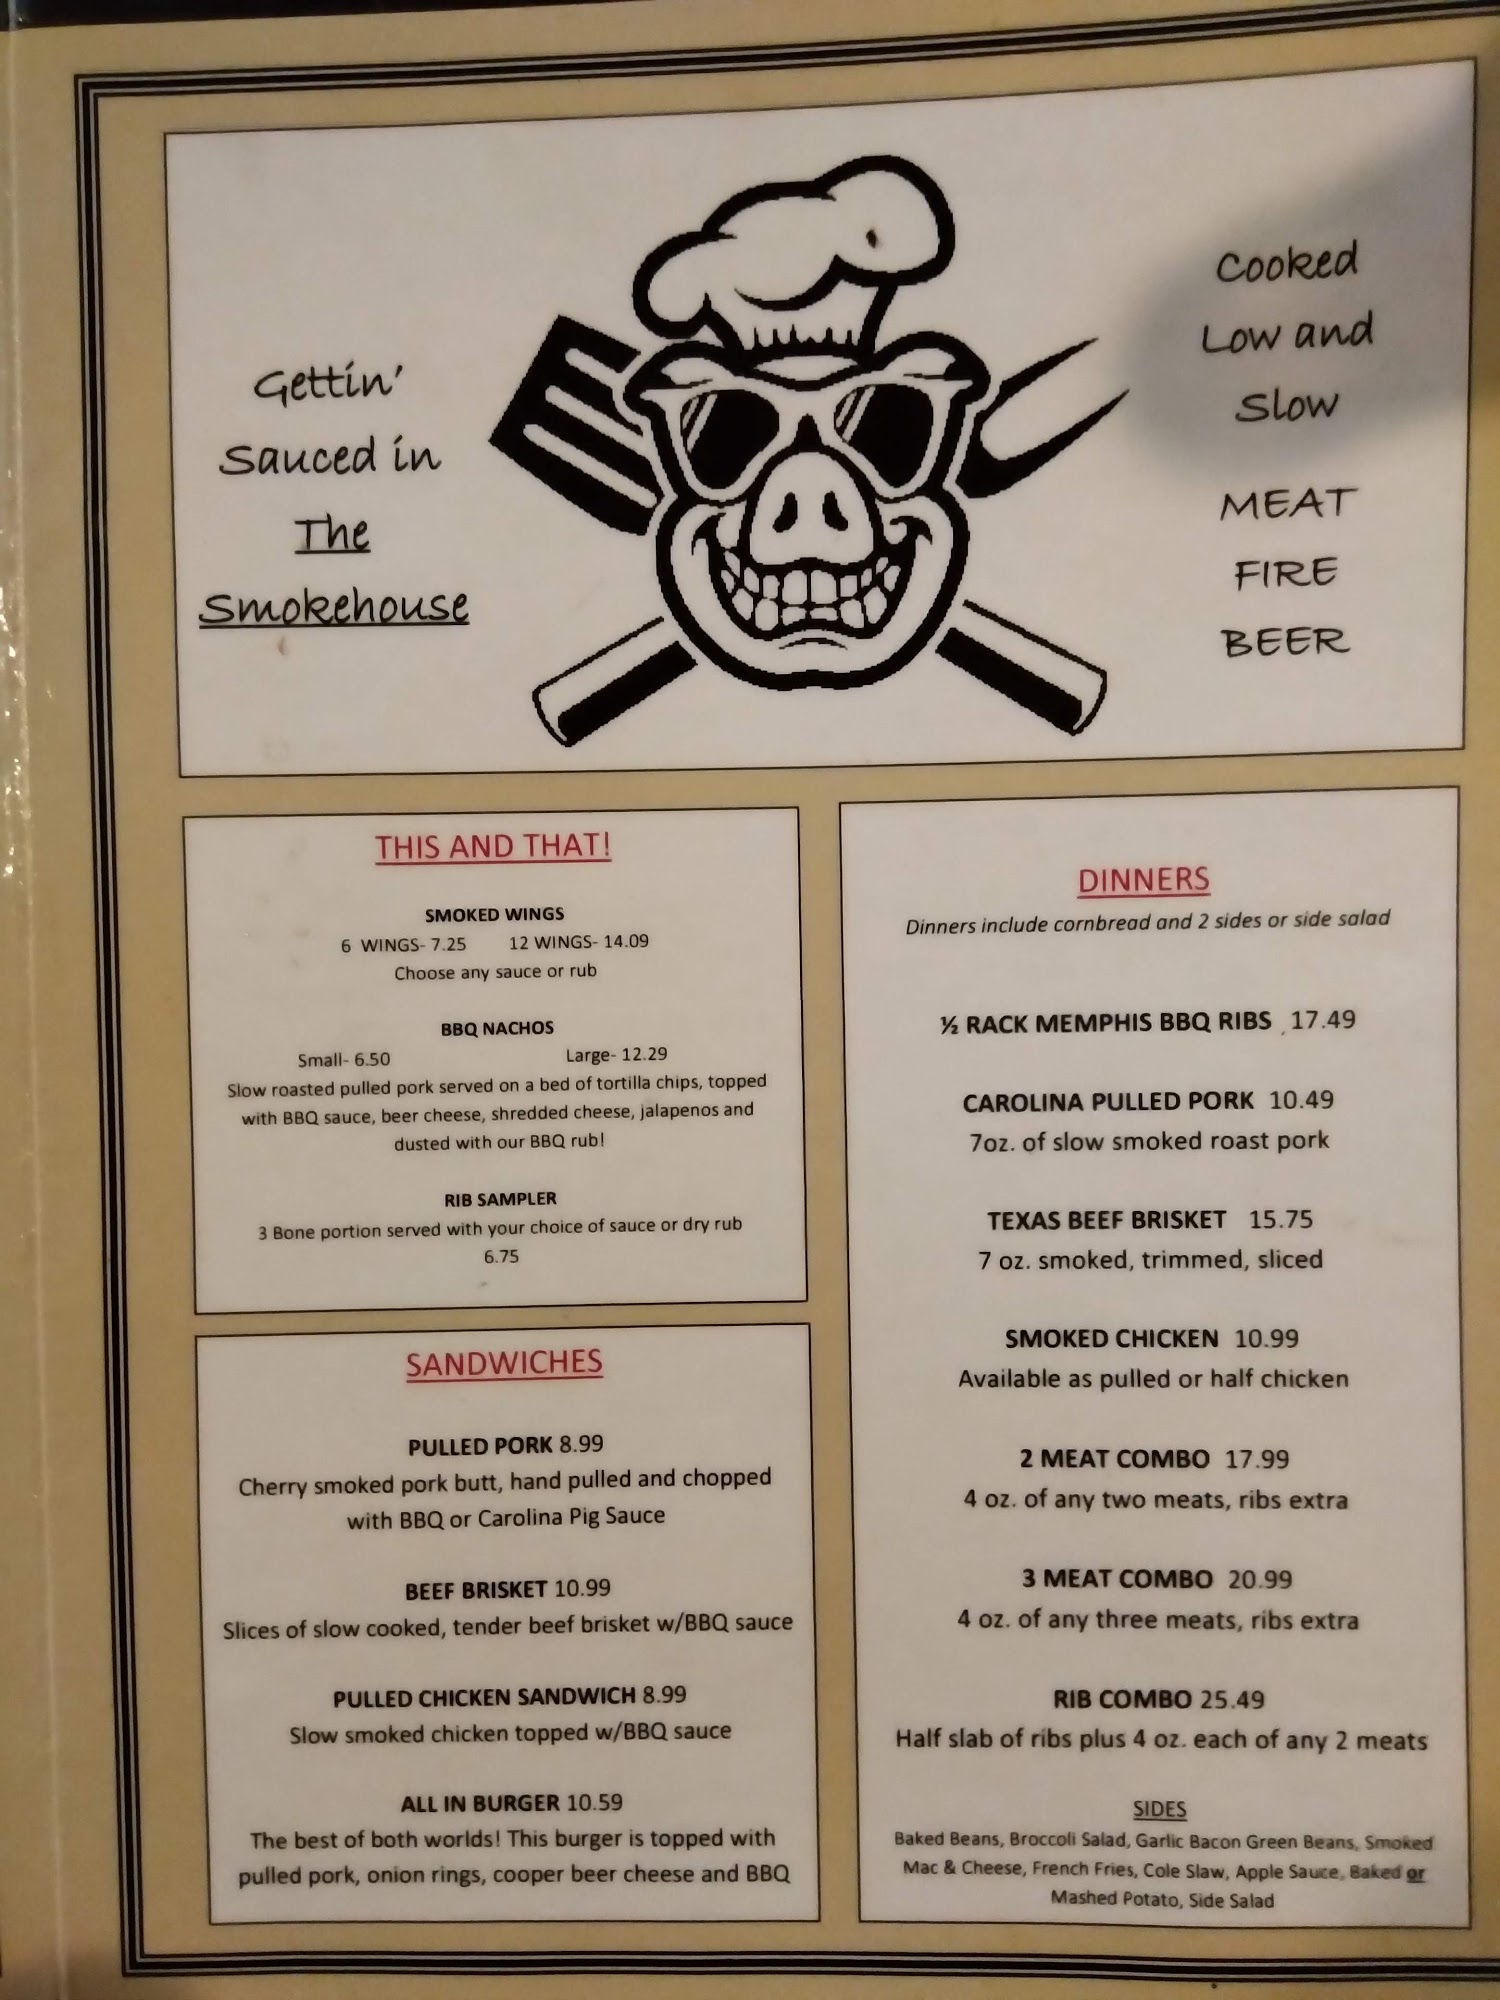 Gettin'
Sauced in
The
Smokehouse
Cooked
Low and
Slow
MEAT
FIRE
BEER
THIS AND THAT!
SMOKED WINGS
6 WINGS- 7.25 12 WINGS- 14.09
Choose any sauce or rub
BBQ NACHOS
Small- 6.50 Large- 12.29
Slow roasted pulled pork served on a bed of tortilla chips, topped
with BBQ sauce, beer cheese, shredded cheese, jalapenos and
dusted with our BBQ rub!
RIB SAMPLER
3 Bone portion served with your choice of sauce or dry rub
6.75
SANDWICHES
PULLED PORK 8.99
Cherry smoked pork butt, hand pulled and chopped
with BBQ or Carolina Pig Sauce
BEEF BRISKET 10.99
Slices of slow cooked, tender beef brisket w/BBQ sauce
PULLED CHICKEN SANDWICH 8.99
Slow smoked chicken topped w/BBQ sauce
ALL IN BURGER 10.59
The best of both worlds! This burger is topped with
pulled pork, onion rings, cooper beer cheese and BBQ
DINNERS
Dinners include cornbread and 2 sides or side salad
½ RACK MEMPHIS BBQ RIBS 17.49
CAROLINA PULLED PORK 10.49
7oz. of slow smoked roast pork
TEXAS BEEF BRISKET 15.75
7 oz. smoked, trimmed, sliced
SMOKED CHICKEN 10.99
Available as pulled or half chicken
2 MEAT COMBO 17.99
4 oz. of any two meats, ribs extra
3 MEAT COMBO 20.99
4 oz. of any three meats, ribs extra
RIB COMBO 25.49
Half slab of ribs plus 4 oz. each of any 2 meats
SIDES
Baked Beans, Broccoli Salad, Garlic Bacon Green Beans, Smoked
Mac & Cheese, French Fries, Cole Slaw, Apple Sauce, Baked or
Mashed Potato, Side Salad